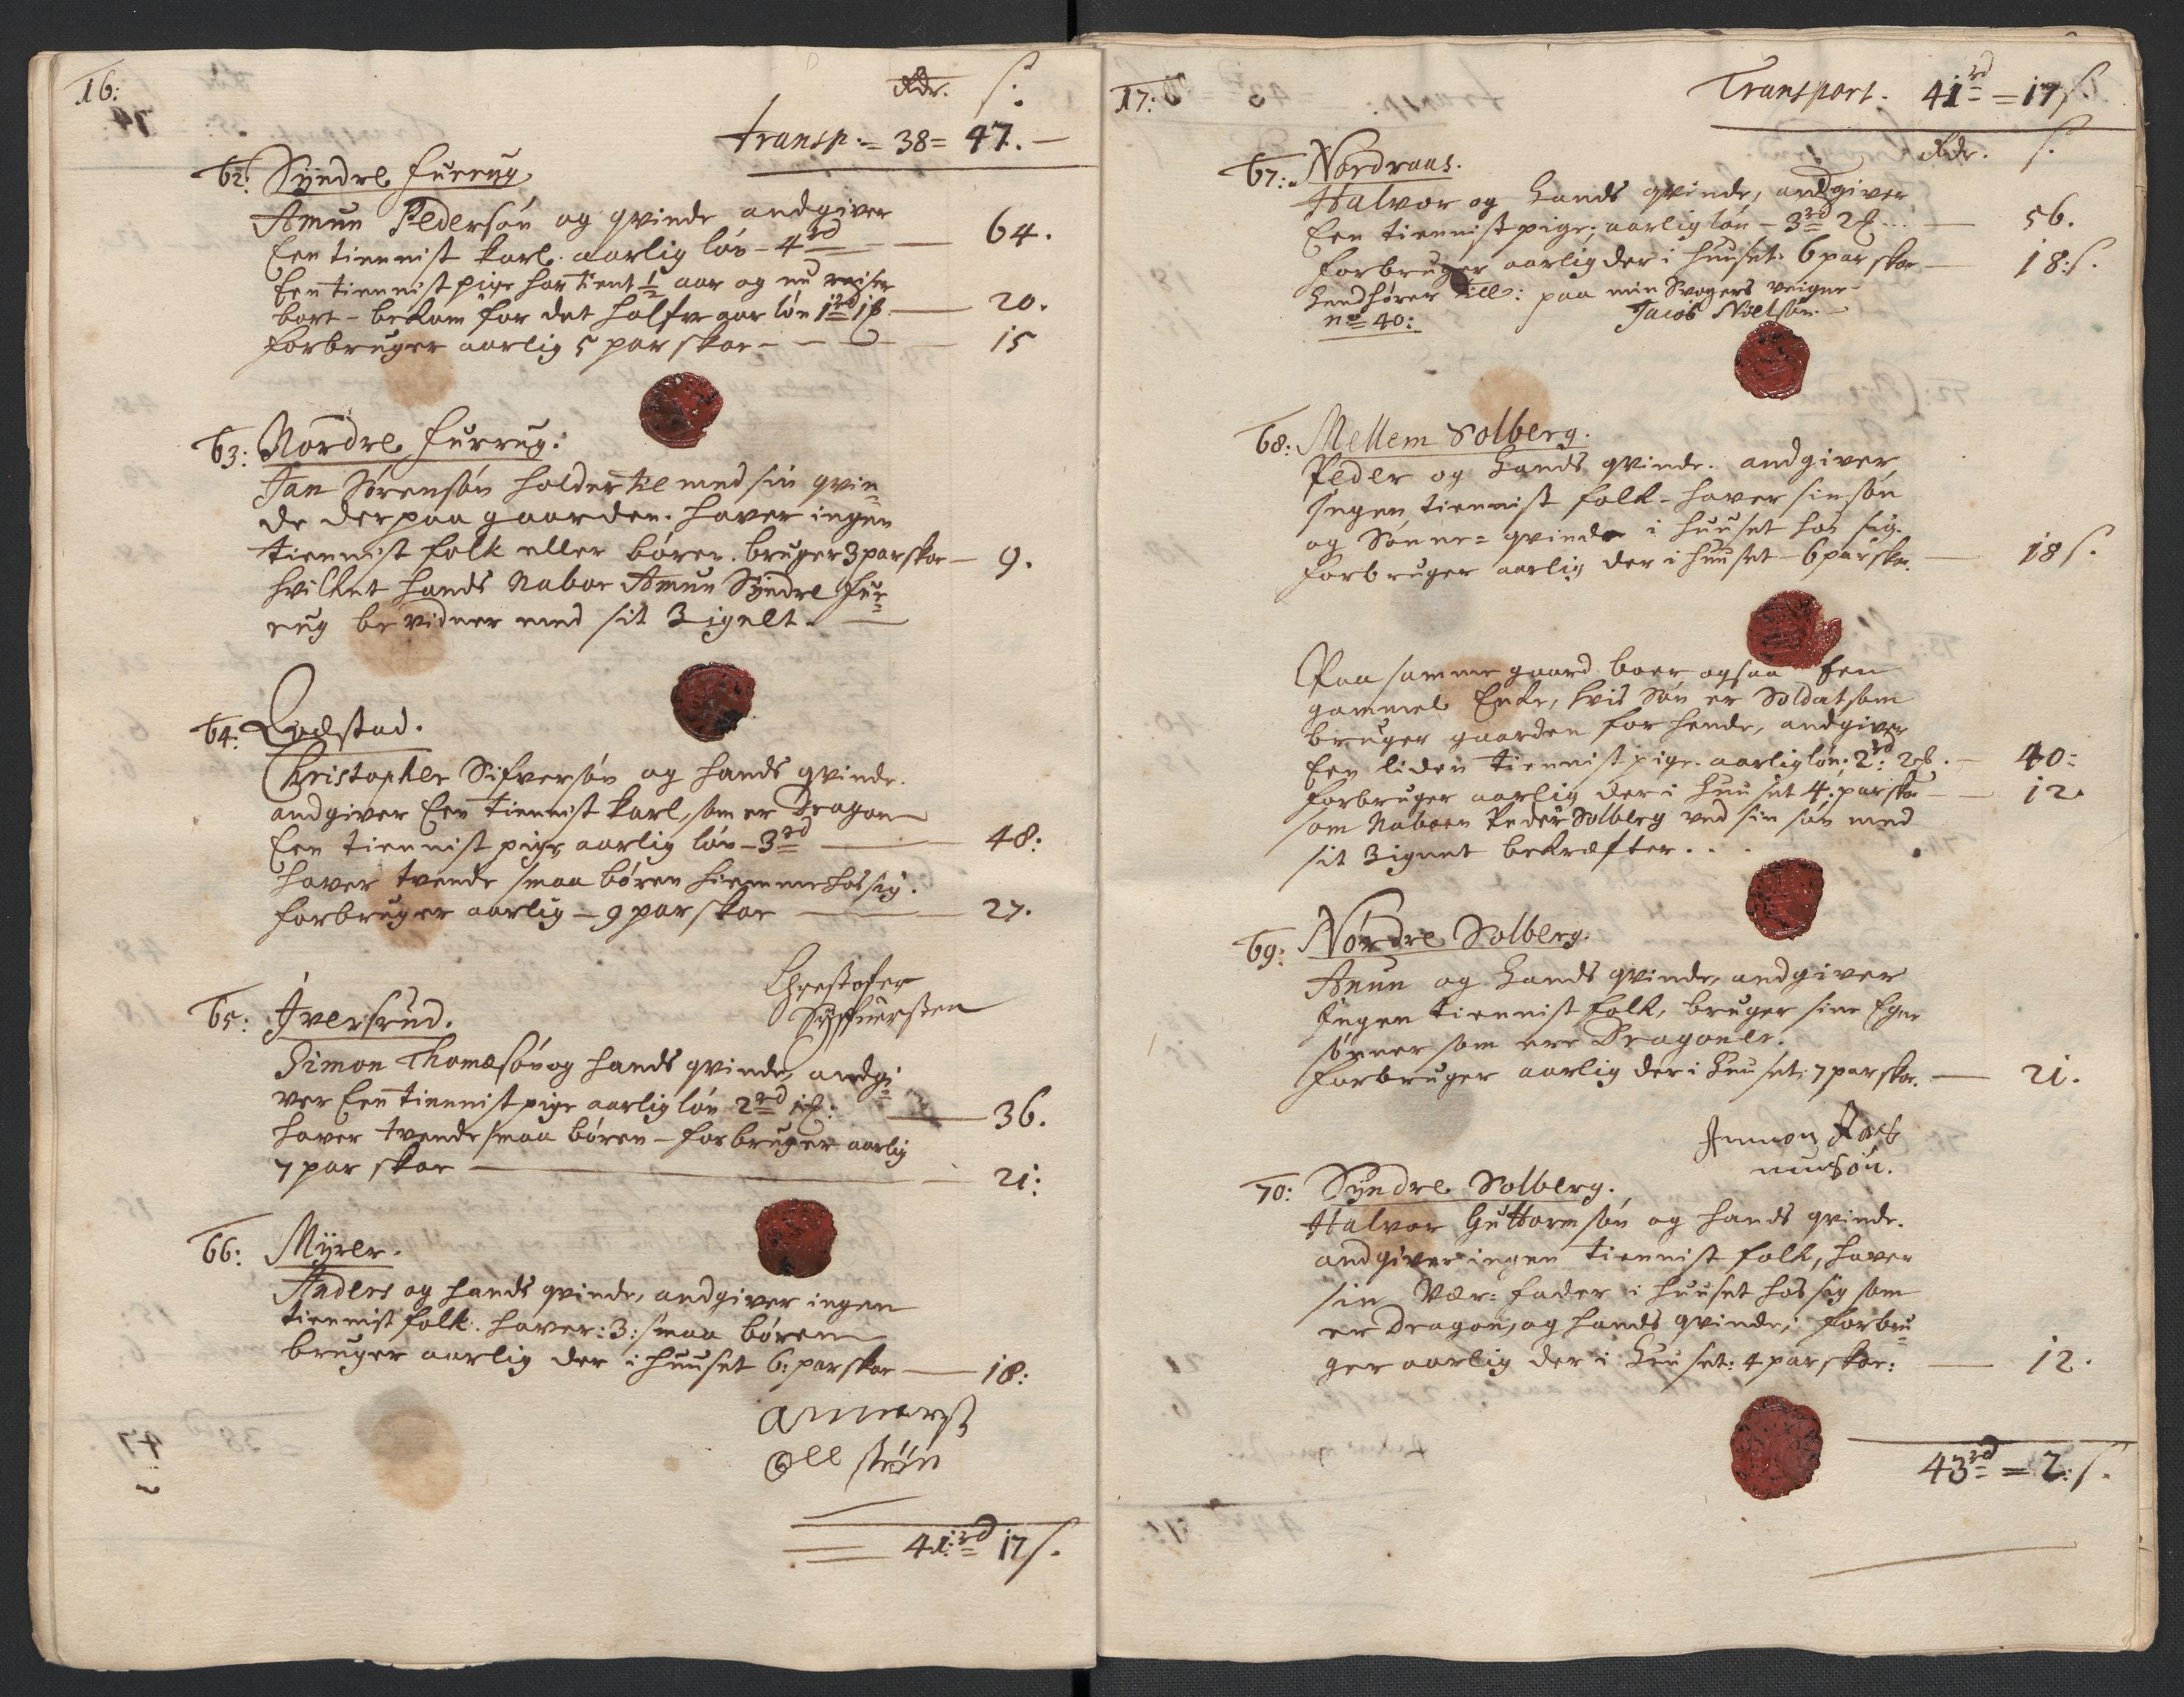 16:
Rdr. s.
transp:= 38= 47.
62: Syndre Furrug.
Amun Pedersøn og qvinde andgiver
Een tiennist karl. aarlig løn - 4 rd — 64.
Een tiennist pige har tient ½ aar og nu reiser
bort - bekom for det halfve aar løn 1 rd 1 — 20.
forbruger aarlig 5 par skoe — 15
63: Nordre Furrug:
Jan Sørensøn holder til med sin qvin=
de der paa gaarden. hafver ingen
tiennist folk eller børen. bruger 3 par skoe — 9.
hvilket hands Nabor Amun Syndre Fur=
rug bevidner med sit Zignelt.
64: stad.
Christopher Sifversøn og hands qvinde.
andgiver Een tiennist karl, som er Dragon
Een tiennist pige aarlig løn - 3 rd — 48:
hafver tvende smaa børen hiemme hos sig.
forbruger aarlig - 9 par skoe — 27.
Chrestofer
Syffuersten
65: Iversrud.
Simon Thomæsøn og hands qvinde, andgi=
ver Een tiennist pige aarlig løn 2 rd 1 : — 36.
hafver tvende smaa børen - forbruger aarlig
7 par skoe — 21:
66: Myrer.
Anders og hands qvinde, andgiver ingen
tiennist folk. hafver: 3: smaa børen
bruger aarlig der i huuset 6: par skoe — 18:
Oll søn
41: rd 17 s.
17:
Transport. 41 rd = 17 s.
Rdr. s.
67: Nordraas.
Halvor og hands qvinde, andgiver
Een tiennist pige; aarlig løn - 3 rd 2 — 56.
forbruger aarlig der i huuset: 6 par skoe — 18: s.
hend hører till: paa min Svogers veigne
no 40: Jacob Nielsøn.
68: Mellem Solberg.
Peder og hands qvinde. andgiver,
Ingen tiennist folk - hafver sin søn
og Sønne= qvinde i huuset hos sig.
forbruger aarlig der i huuset - 6 par skoe. — 18 s.
Paa samme gaard boer ogsaa Een
gammel Enke, hvis Søn er Soldat som
bruger gaarden for hende, andgiver
Een liden tiennist pige. aarlig løn: 2: rd 2 . — 40:
forbruger aarlig der i huuset 4: par skoe — 12.
som Naboen Peder Solberg ved sin søn med
sit Zignet bekræfter.
69: Nordre Solberg.
Amun og hands qvinde, andgiver
Ingen tiennist folk, bruger sine Egne
sønner som ere Dragoner.
forbruger aarlig der i huuset: 7 par skoe. — 21.
munsøn.
70: Syndre Solberg.
Halvor Guttormsøn og hands qvinde.
andgiver ingen tiennist folk, hafver
sin Vær= fader i huuset hos sig som
er Dragon, og hands qvinde; forbru=
ger aarlig der i huuset: 4 par skoe: — 12.
43 rd = 2: s.